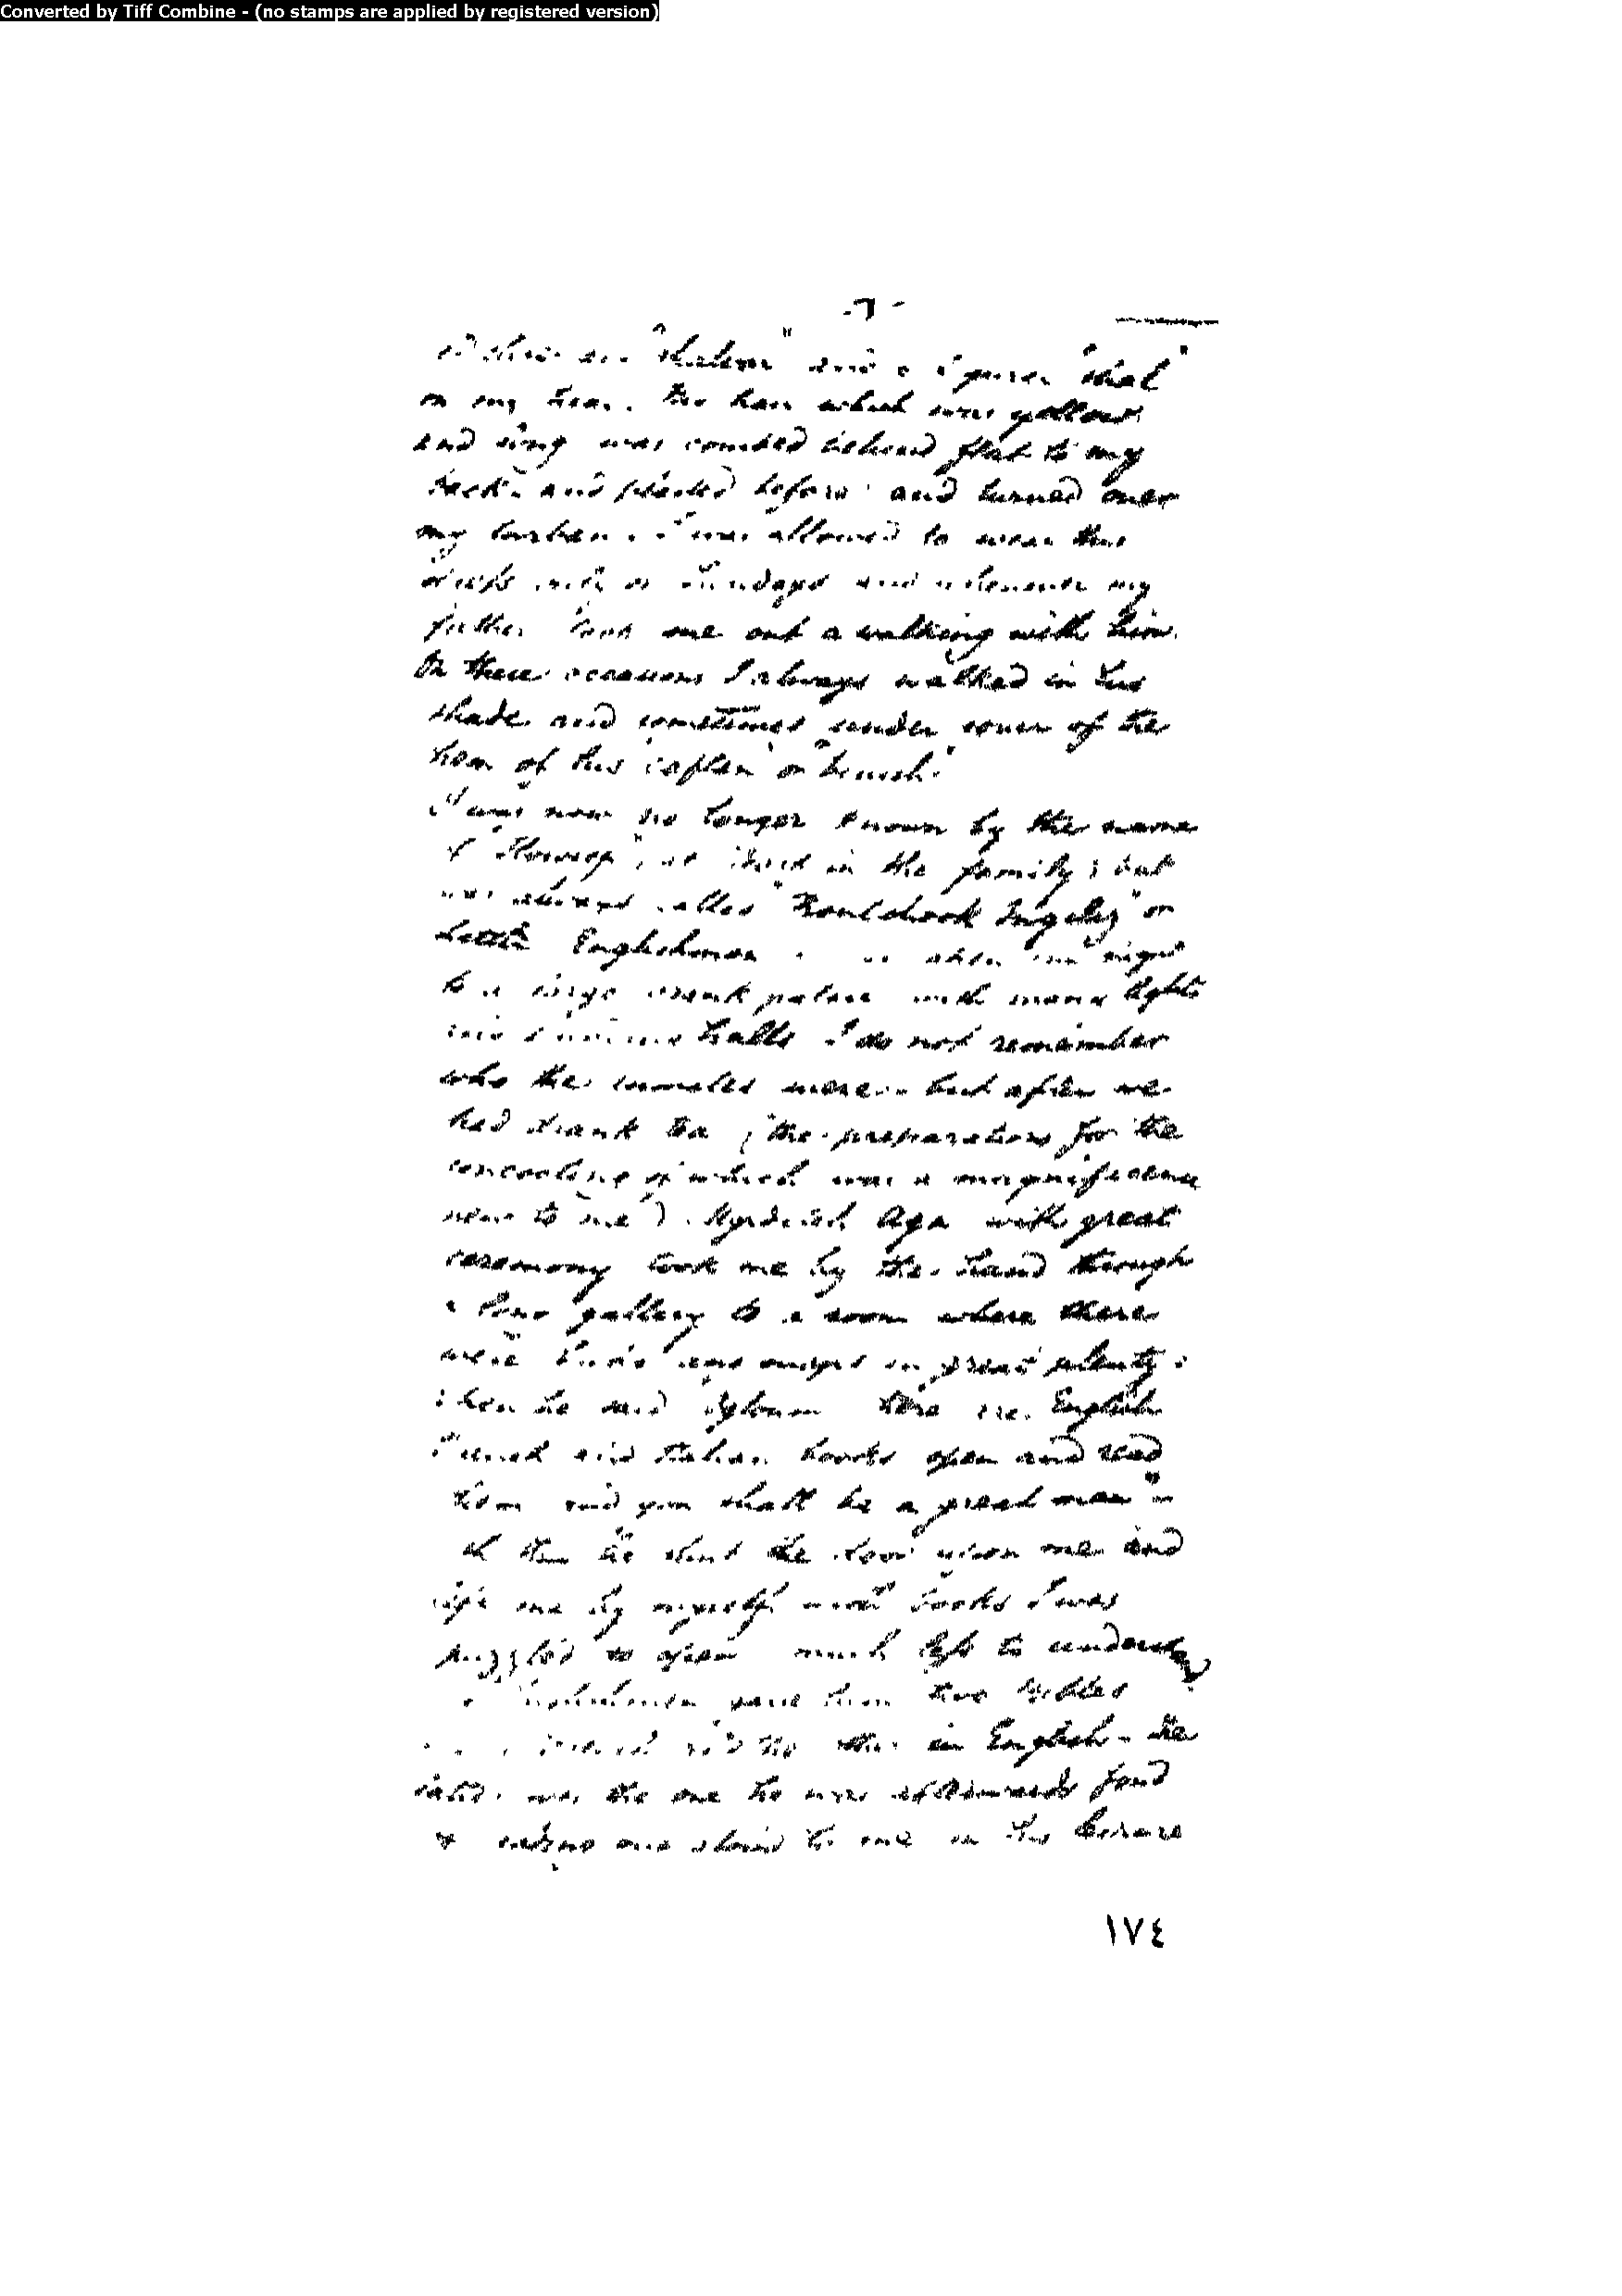 Converted by Tiff Combine - (no stamps are applied by registered version)
-7-
and a "shal"
on my head. The hair which was yellow
and long was combed behind flat to my
neck and plaited before and turned over
my turban. I was allowed to wear this
dress only on Sundays and whenever my
father took me out a walking with him.
On these occasions I always walked in his
shade and sometimes under cover of the
hem of his "caftan" or "benish."
I was now no longer known by the name
of in the family; but
was always called "Koutchook Ingeley" or
little Englishman. night
to a large palace with many lights
and halls I do not remember
who the inmates were - but after we
had drank tea (the preparations for the
concocting of which was a magnificence
new to me) Aga with great
ceremony took me by the hand through
a long gallery to a room where there
were books and maps in great plenty.
Then he said there are English
French and Italian books open and read
them and you shall be a great man" -
he shut the door upon me and
left me by myself with books I was
puzzled to open much less to understand
gave him two bibles
and the other in English - the
latter was the one he was afterwards fond
of to me in his leisure
١٧٤